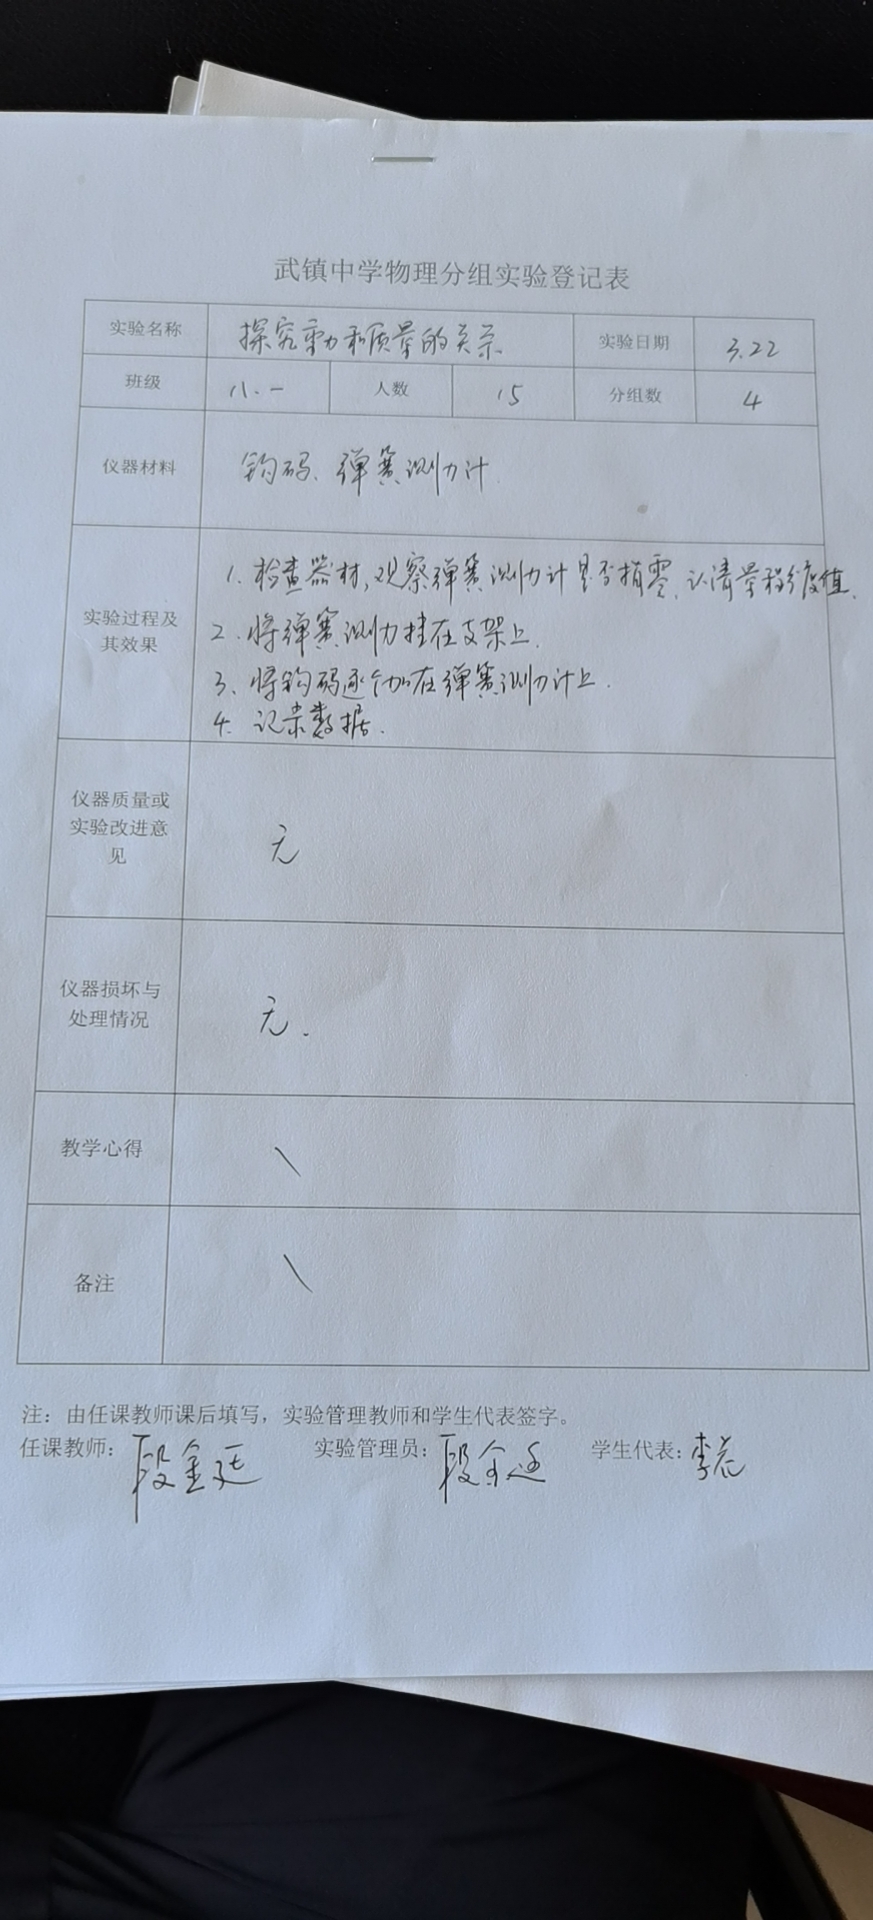 武镇中学物理分组实验登记表
实验名称 探究重力和质量的关系 实验日期 3.22
班级 八.一 人数 15 分组数 4
仪器材料 钩码、弹簧测力计
1. 检查器材,观察弹簧测力计是否指零、认清量程分度值.
实验过程及
其效果
2. 将弹簧测力挂在支架上.
3、将钩码逐个加在弹簧测力计上.
4. 记录数据.
仪器质量或
实验改进意
见
无
仪器损坏与
处理情况
无.
教学心得 \
备注 \
注：由任课教师课后填写，实验管理教师和学生代表签字。
任课教师：段金廷 实验管理员：段金廷 学生代表：李